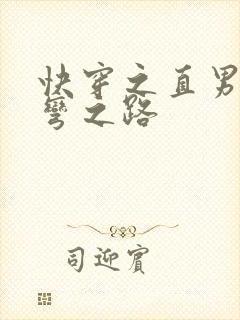 快穿之直男
弯之路
司迎宾